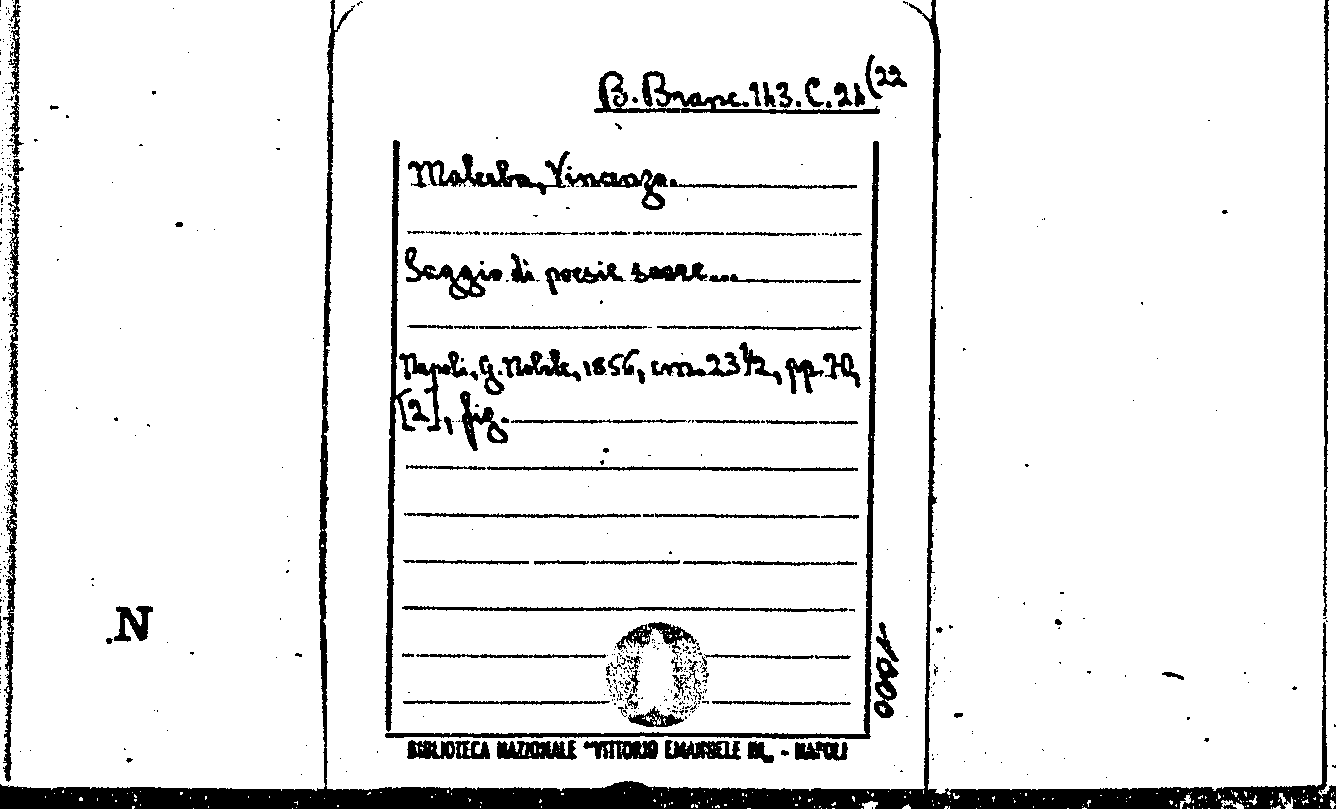 B. Branc. 143. C. 24 (22
Malerba, Vincenzo.
Saggio di poesie sacre...
Napoli, G. Nobile, 1856, cm. 23 1/2, pp. 70,
[2], fig.
N
BIBLIOTECA NAZIONALE "VITTORIO EMANUELE III„ - NAPOLI